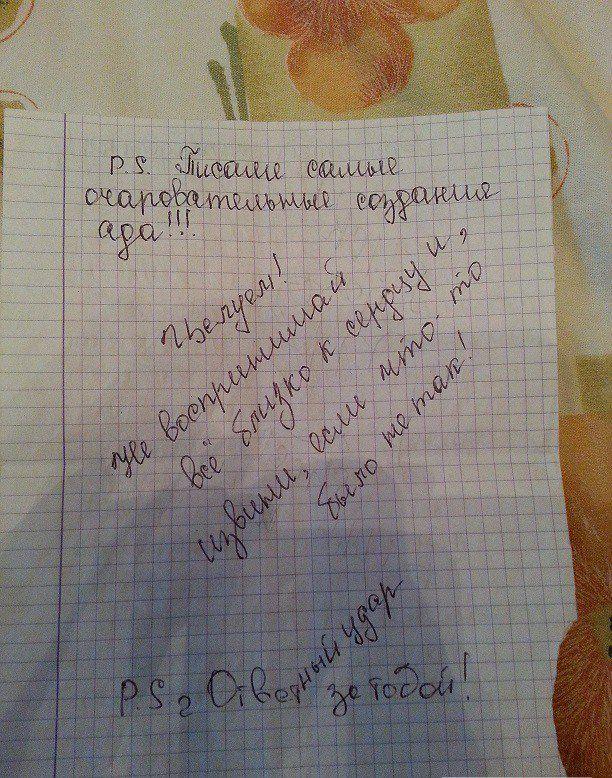 P.S. Писали самые
очаровательные создания
ада!!!
Целуем!
Не воспринимай
всё близко к сердцу и,
извини, если что-то
было не так!
P.S 2 Ответный удар
за тобой!